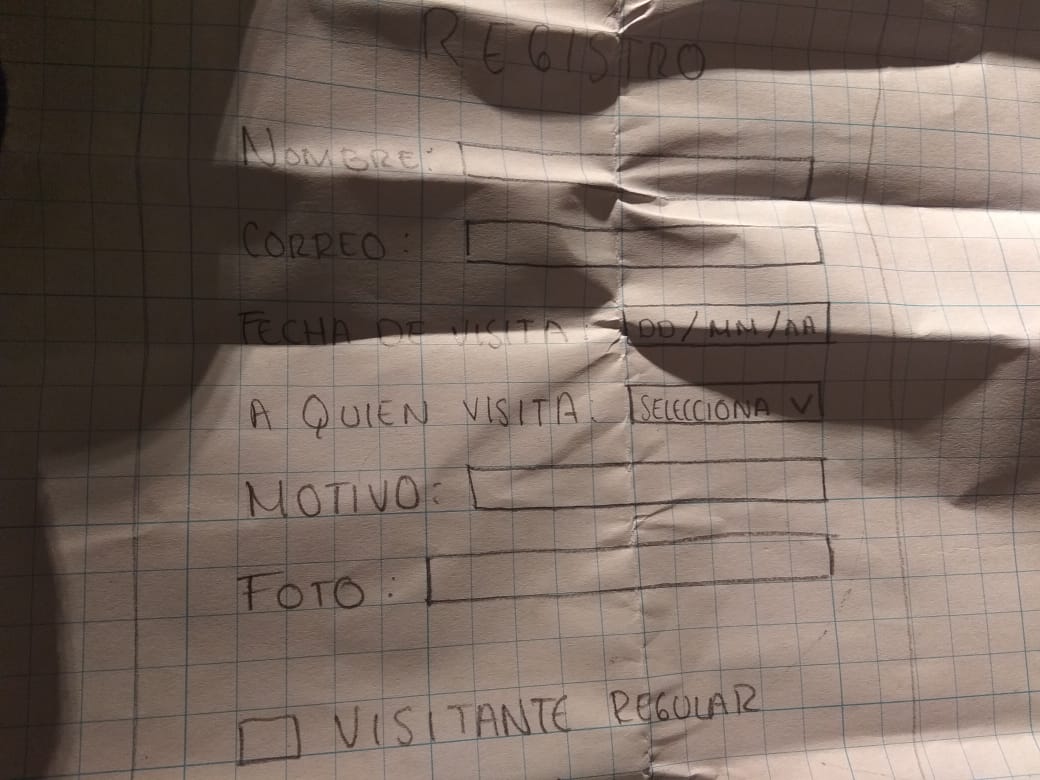 REGISTRO
NOMBRE:
CORREO:
FECHA DE VISITA: DD/MM/AA
A QUIEN VISITA: SELECCIONA V
MOTIVO:
FOTO:
VISITANTE REGULAR